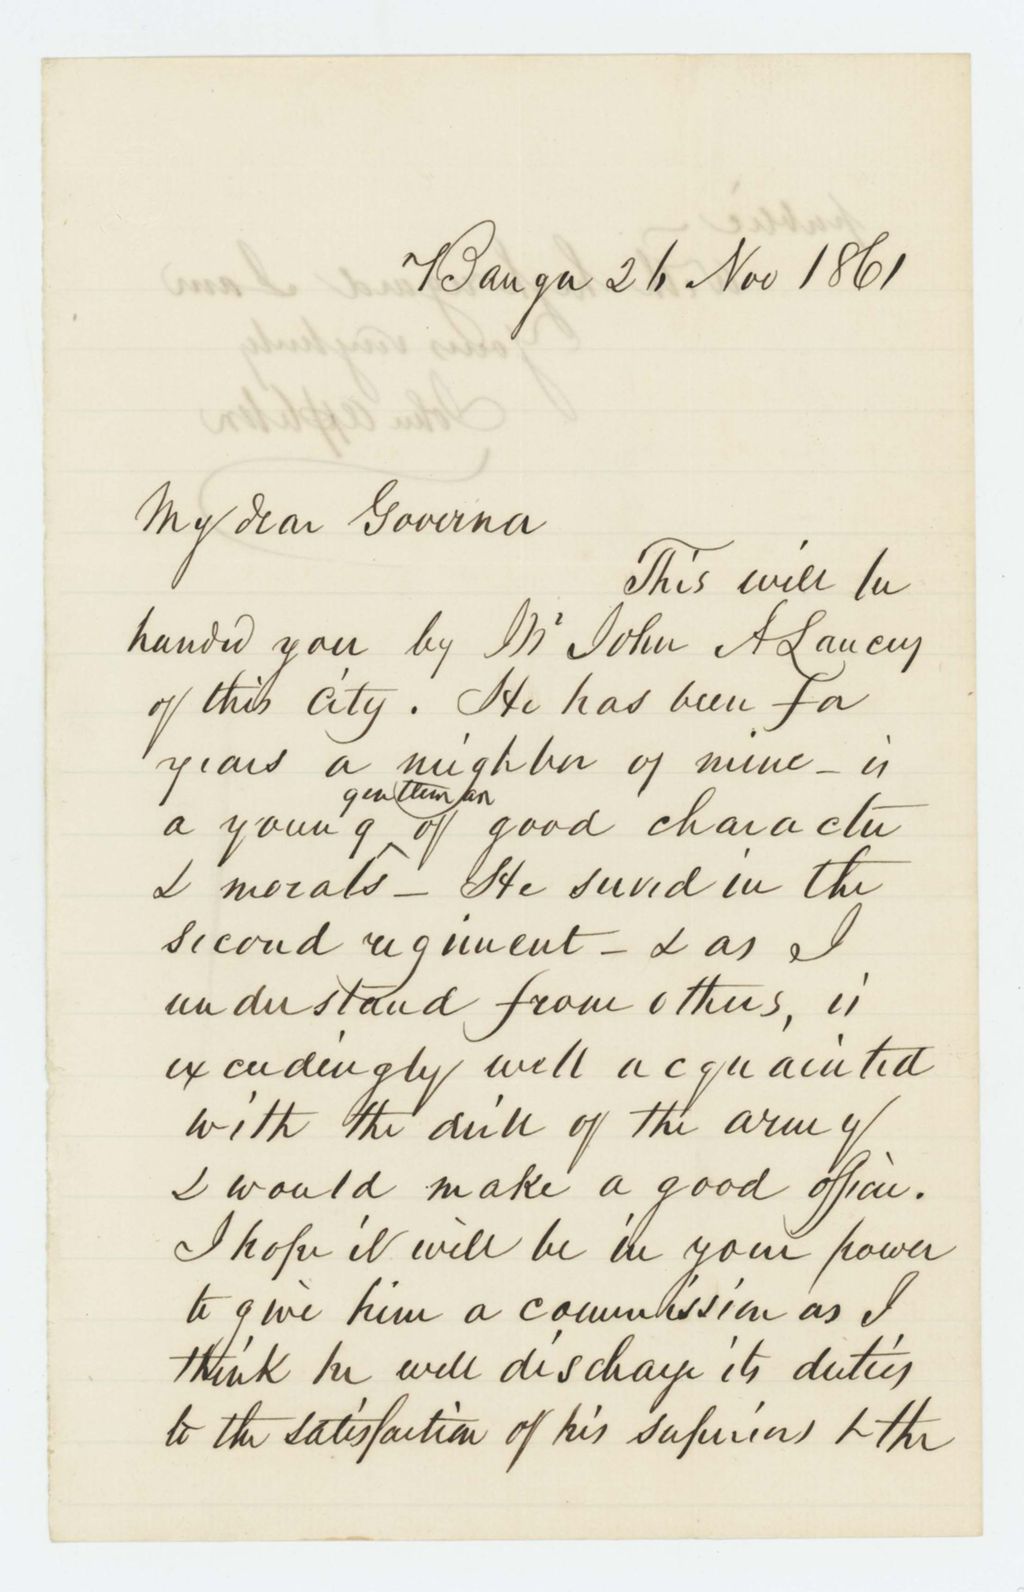 Bangor 26 Nov 1861
My dear Governor
This will be
handed you by Mr John A Lancey
of this City. He has been for
years a neighbor of mine - is
a young gentleman of good character
& morals - He served in the
second regiment - & as I
understand from others, is
exceedingly well acquainted
with the drill of the army
& would make a good officer.
I hope it will be in your power
to give him a commission as I
think he will discharge its duties
to the satisfaction of his superiors & the